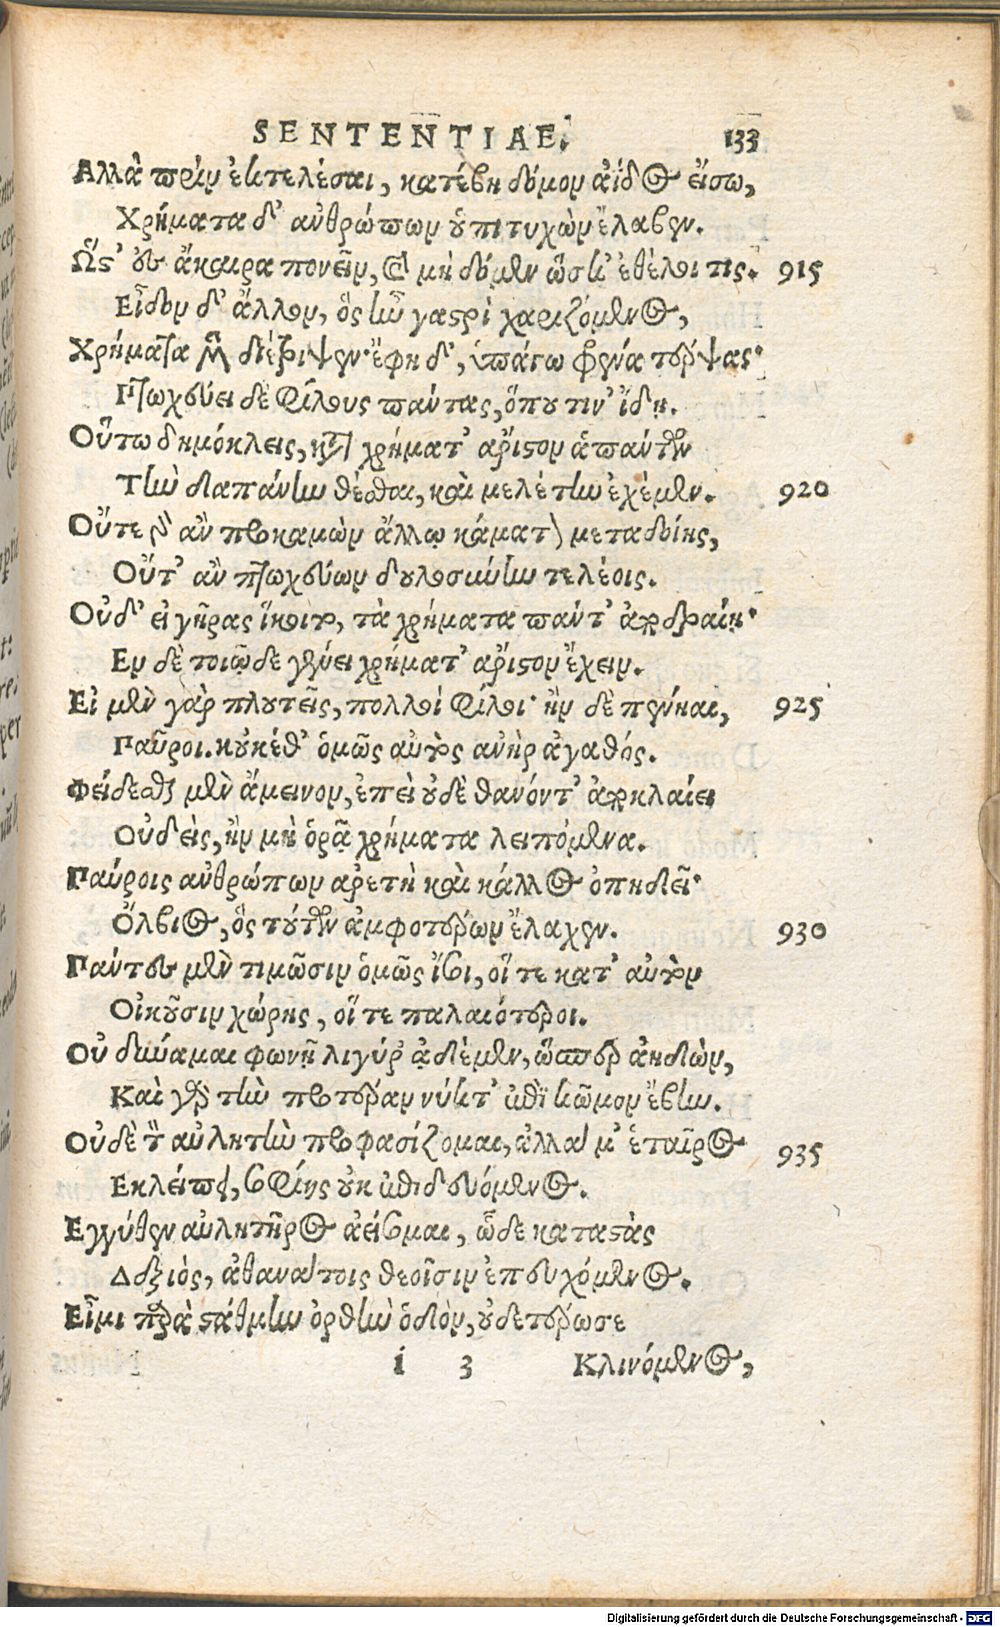 SENTENTIAE. 133
Αλλὰ πρὶν ἐκτελέσαι, κατέβη δόμον ἄϊδος εἴσω,
Χρήματα δ' ἀνθρώπων ὁπιτυχὼν ἔλαβεν.
Ὥς' ἐς ἄκαιρα πονεῖν, καὶ μὴ δόμεν ᾧ κ' ἐθέλοι τις. 915
Εἶδον δ' ἄλλον, ὃς ᾗ γαστρὶ χαριζόμενος,
Χρήματα μὲν διέτριψεν· ἔφη δ', ὑπάγω φρένα τέρψας·
Πτωχεύει δὲ φίλους πάντας, ὅπου τιν' ἴδῃ.
Οὕτω δημόκλεις, κατὰ χρήματ' ἄριστον ἁπάντων
Τὴν δαπάνην θέσθαι, καὶ μελέτην ἐχέμεν. 920
Οὔτε γὰρ ἂν προκαμὼν ἄλλῳ κάματον μεταδοίης,
Οὔτ' ἂν πτωχεύων δουλοσύνην τελέοις.
Οὐδ' εἰ γῆρας ἵκοιτο, τὰ χρήματα πάντ' ἀποδραίη·
Εν δὲ τοιῷδε γένει χρήματ' ἄριστον ἔχειν.
Εἰ μὲν γὰρ πλουτεῖς, πολλοὶ φίλοι· ἢν δὲ πένηαι, 925
Παῦροι. κοὐκέθ' ὁμῶς αὐτὸς ἀνὴρ ἀγαθός.
Φείδεσθαι μὲν ἄμεινον, ἐπεὶ οὐδὲ θανόντ' ἀποκλαίει
Οὐδεὶς, ἢν μὴ ὁρᾷ χρήματα λειπόμενα.
Παύροις ἀνθρώπων ἀρετὴ καὶ κάλλος ὀπηδεῖ·
Ὄλβιος, ὃς τούτων ἀμφοτέρων ἔλαχεν. 930
Πάντες μὲν τιμῶσιν ὁμῶς ἴσοι, οἵ τε κατ' αὐτὸν
Οἰκοῦσιν χώρης, οἵ τε παλαιότεροι.
Οὐ δύναμαι φωνῇ λιγύρ' ᾀδέμεν, ὥσπερ ἀηδὼν,
Καὶ γὰρ τὴν προτέραν νύκτ' ἐπὶ κῶμον ἔβην.
Οὐδὲ τὸν αὐλητὴν προφασίζομαι, ἀλλά μ' ἑταῖρος 935
Εκλείπει, σοφίης οὐκ ἐπιδευόμενος.
Εγγύθεν αὐλητῆρος ἀείσομαι, ὧδε καταστὰς
Δεξιὸς, ἀθανάτοις θεοῖσιν ἐπευχόμενος.
Εἶμι παρὰ στάθμην ὀρθὴν ὁδὸν, οὐδετέρωσε
i 3 Κλινόμενος,
Digitalisierung gefördert durch die Deutsche Forschungsgemeinschaft - DFG